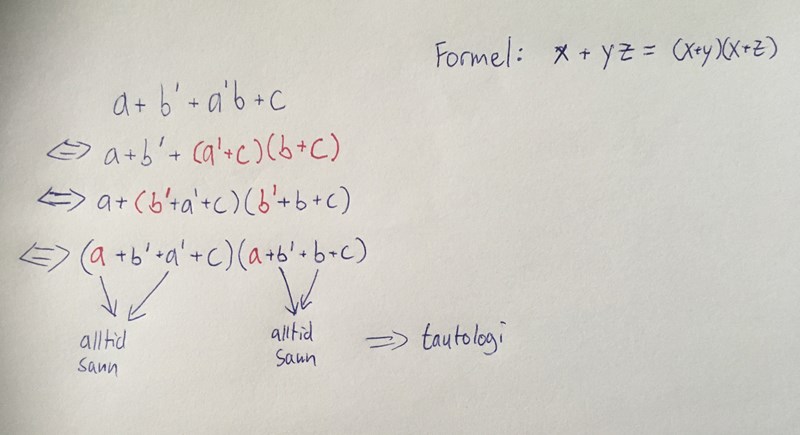 Formel: x + yz = (x+y)(x+z)
a + b' + a'b + c
⇔ a + b' + (a'+c)(b+c)
⇔ a + (b'+a'+c)(b'+b+c)
⇔ (a + b' + a' + c)(a + b' + b + c)
alltid alltid
sann sann ⇒ tautologi